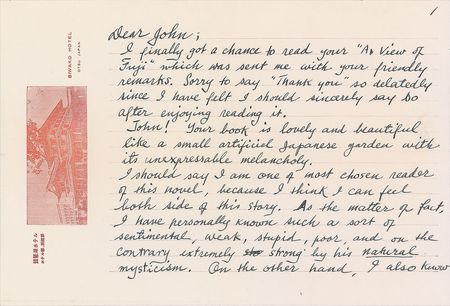 1
BIWAKO HOTEL
OTSU JAPAN
Dear John;
I finally got a chance to read your "A View of
Fuji" which was sent me with your friendly
remarks. Sorry to say "Thank you" so delatedly
since I have felt I should sincerely say so
after enjoying reading it.
John! Your book is lovely and beautiful
like a small artificiel Japanese garden with
its unexpressable melancholy.
I should say I am one of most chosen reader
of this novel, because I think I can feel
both side of this story. As the matter of fact,
I have personally known such a sort of
sentimental, weak, stupid, poor, and on the
contrary extremely strong by his natural
mysticism. On the other hand, I also know
琵琶湖ホテル